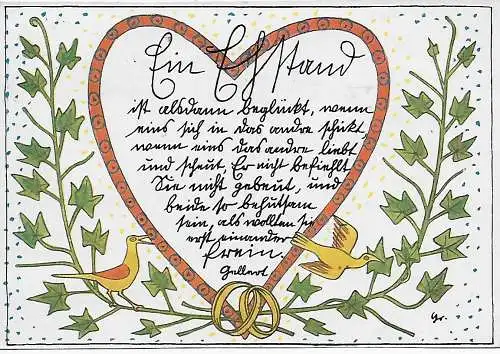 Ein Ehstand
ist alsdann beglückt, wenn
eins sich in das andre schickt
wenn eins das andre liebt
und scheut. Er nicht befiehlt
Sie nicht gebeut, und
beide so behutsam
sein, als wollten sie
erst einander
frein.
Gellert.
Gr.